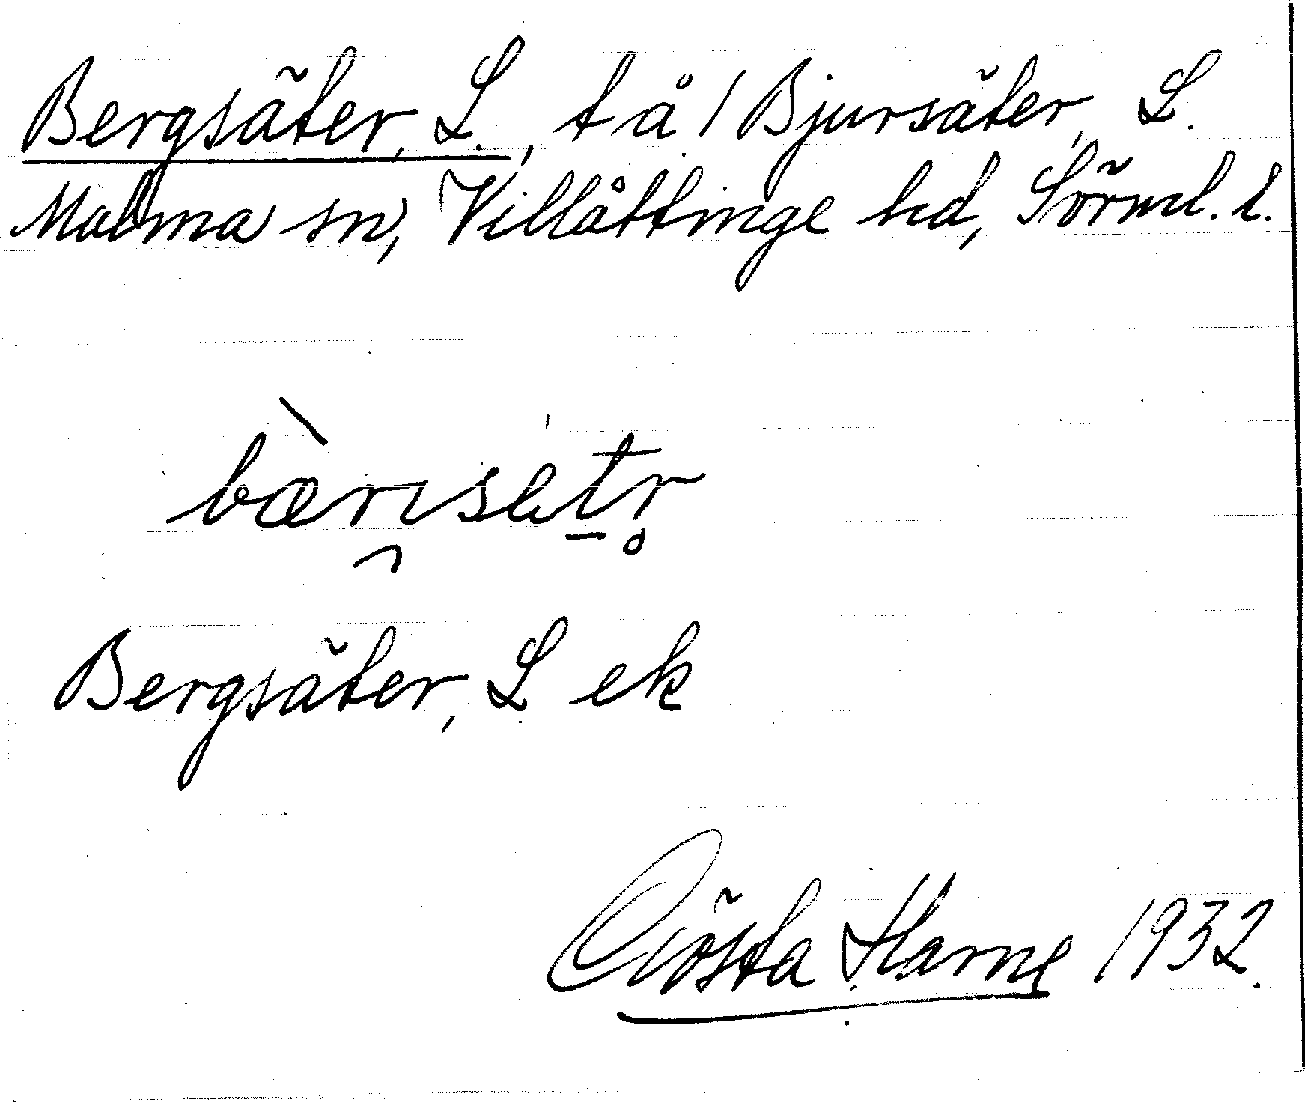 Bergsäter, L., t å / Bjursäter, L.
Malma sn, Villåttinge hd, Sörml. l.
Bergsäter, L ek
Gösta Harne 1932.